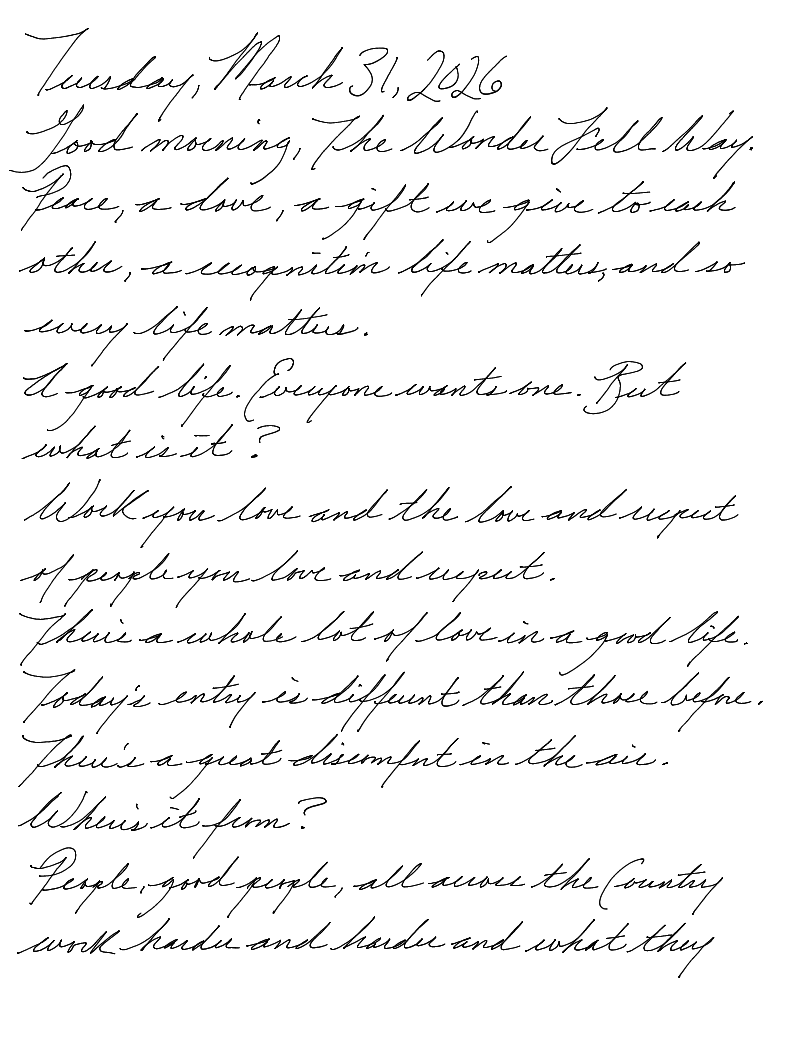 Tuesday, March 31, 2026
Good morning, The Wonder Fell Way.
Peace, a dove, a gift we give to each
other, a recognition life matters, and so
every life matters.
A good life. Everyone wants one. But
what is it?
Work you love and the love and respect
of people you love and respect.
There's a whole lot of love in a good life.
Today's entry is different than those before.
There's a great discomfort in the air.
Where's it from?
People, good people, all across the Country
work harder and harder and what they